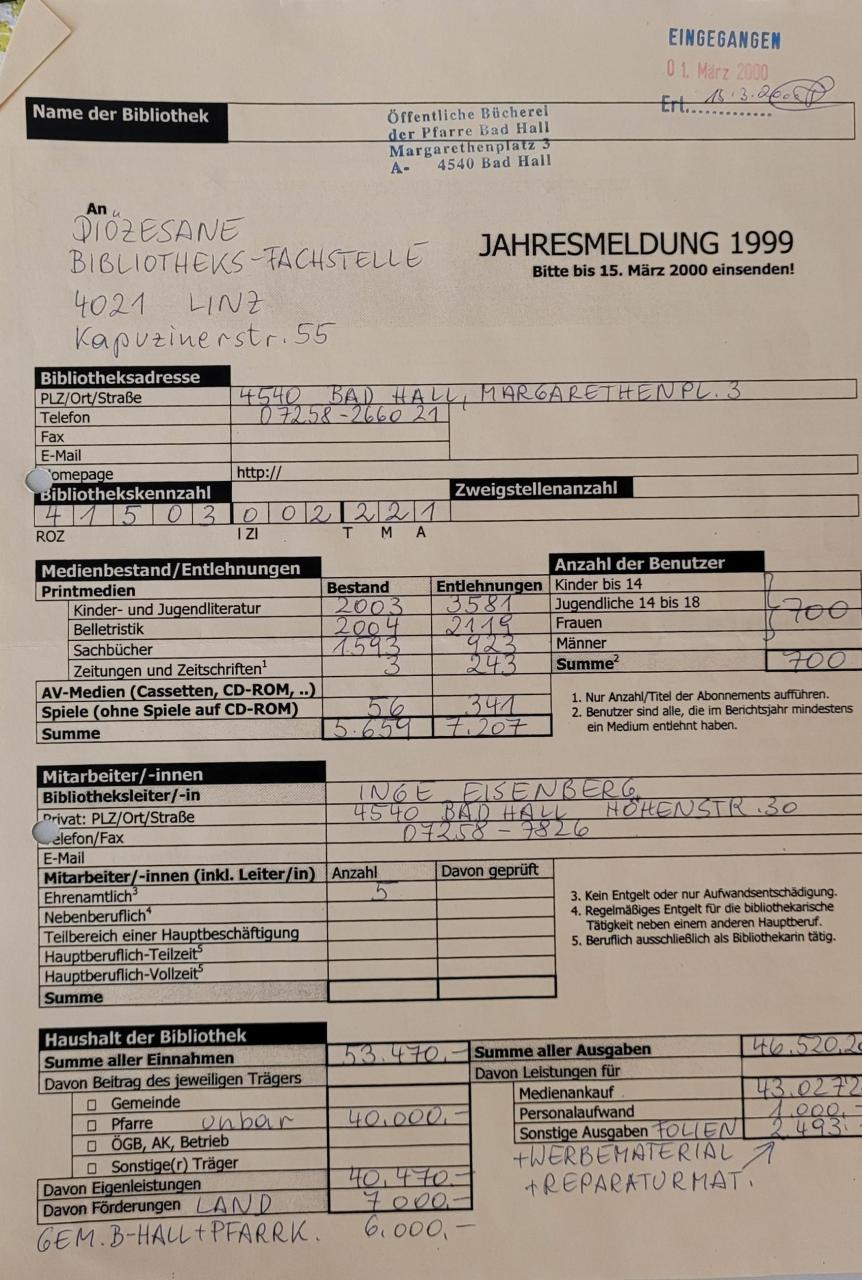 EINGEGANGEN
01. März 2000
Erl. 15.3.2000
Name der Bibliothek
Öffentliche Bücherei
der Pfarre Bad Hall
Margarethenplatz 3
A- 4540 Bad Hall
An
DIÖZESANE
BIBLIOTHEKS-FACHSTELLE
4021 LINZ
Kapuzinerstr. 55
JAHRESMELDUNG 1999
Bitte bis 15. März 2000 einsenden!
Bibliotheksadresse
PLZ/Ort/Straße 4540 BAD HALL, MARGARETHENPL. 3
Telefon 07258-2660 21
Fax
E-Mail
omepage http://
Bibliothekskennzahl Zweigstellenanzahl
4 1 5 0 3 0 0 2 2 2 1
ROZ I ZI T M A
Medienbestand/Entlehnungen Anzahl der Benutzer
Printmedien Bestand Entlehnungen Kinder bis 14
Kinder- und Jugendliteratur 2003 3581 Jugendliche 14 bis 18 700
Belletristik 2004 2119 Frauen
Sachbücher 1.593 923 Männer
Zeitungen und Zeitschriften¹ 3 243 Summe² 700
AV-Medien (Cassetten, CD-ROM, ..)
Spiele (ohne Spiele auf CD-ROM) 56 341
Summe 5.659 7.207
1. Nur Anzahl/Titel der Abonnements aufführen.
2. Benutzer sind alle, die im Berichtsjahr mindestens
ein Medium entlehnt haben.
Mitarbeiter/-innen
Bibliotheksleiter/-in INGE EISENBERG
Privat: PLZ/Ort/Straße 4540 BAD HALL HÖHENSTR. 30
elefon/Fax 07258-7826
E-Mail
Mitarbeiter/-innen (inkl. Leiter/in) Anzahl Davon geprüft
Ehrenamtlich³ 5
Nebenberuflich⁴
Teilbereich einer Hauptbeschäftigung
Hauptberuflich-Teilzeit⁵
Hauptberuflich-Vollzeit⁵
Summe
3. Kein Entgelt oder nur Aufwandsentschädigung.
4. Regelmäßiges Entgelt für die bibliothekarische
Tätigkeit neben einem anderen Hauptberuf.
5. Beruflich ausschließlich als Bibliothekarin tätig.
Haushalt der Bibliothek
Summe aller Einnahmen 53.470,- Summe aller Ausgaben 46.520,20
Davon Beitrag des jeweiligen Trägers Davon Leistungen für
Gemeinde Medienankauf 43.0272
Pfarre unbar 40.000,- Personalaufwand 1.000,-
ÖGB, AK, Betrieb Sonstige Ausgaben FOLIEN 2.493.-
Sonstige(r) Träger +WERBEMATERIAL
Davon Eigenleistungen 40.470.- +REPARATURMAT.
Davon Förderungen LAND 7000,-
GEM. B-HALL+PFARRK. 6.000,-